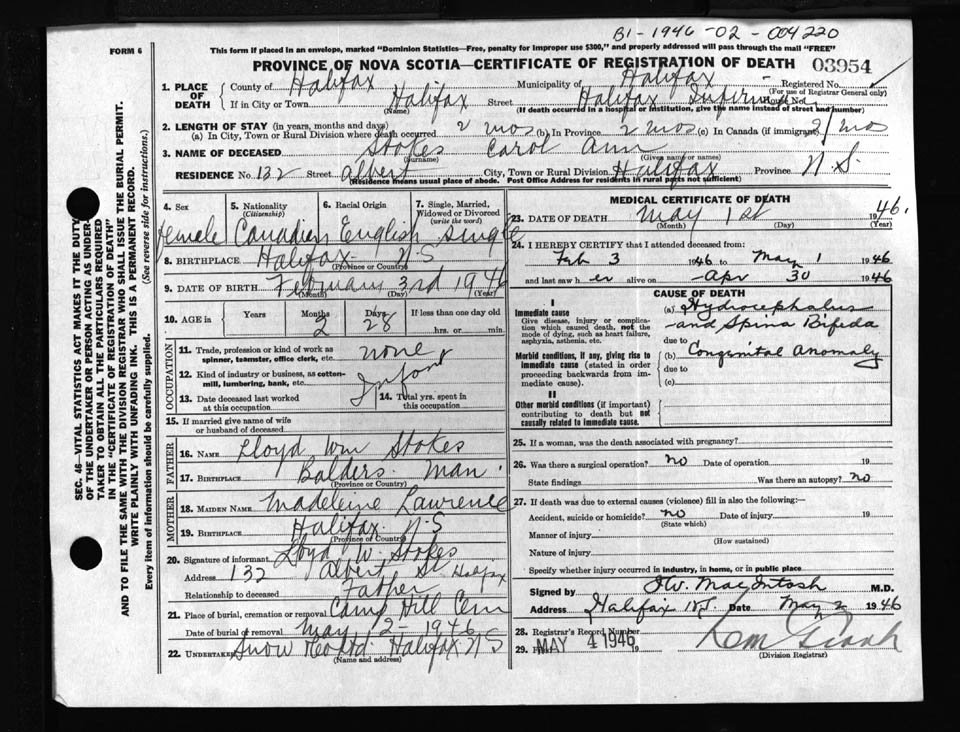 B1-1946-02-004220
FORM 6
This form if placed in an envelope, marked "Dominion Statistics—Free, penalty for improper use $300," and properly addressed will pass through the mail "FREE"
PROVINCE OF NOVA SCOTIA—CERTIFICATE OF REGISTRATION OF DEATH 03954
1. PLACE OF DEATH
County of Halifax Municipality of Halifax Registered No.
(For use of Registrar General only)
If in City or Town Halifax Street Halifax House No.
(Name) (If death occurred in a hospital or institution, give the name instead of street and number)
2. LENGTH OF STAY (in years, months and days)
(a) In City, Town or Rural Division where death occurred 2 mos (b) In Province 2 mos (c) In Canada (if immigrant) 2 mos
3. NAME OF DECEASED Stokes Carol Ann
(Surname) (Given name or names)
RESIDENCE No. 132 Street Albert City, Town or Rural Division Halifax Province N.S.
(Residence means usual place of abode. Post Office Address for residents in rural parts not sufficient)
4. Sex
5. Nationality
(Citizenship)
6. Racial Origin
7. Single, Married, Widowed or Divorced
(write the word)
female Canadian English single
8. BIRTHPLACE Halifax N.S
(Province or Country)
9. DATE OF BIRTH February 3rd 1946
(Month) (Day) (Year)
10. AGE in Years Months Days If less than one day old
2 28 hrs. or min.
OCCUPATION
11. Trade, profession or kind of work as
spinner, teamster, office clerk, etc. none
12. Kind of industry or business, as cotton-
mill, lumbering, bank, etc. Infant
13. Date deceased last worked
at this occupation
14. Total yrs. spent in
this occupation
15. If married give name of wife
or husband of deceased
FATHER
16. NAME Lloyd Wm Stokes
17. BIRTHPLACE Balders. Man.
(Province or Country)
MOTHER
18. MAIDEN NAME Madeleine Lawrence
19. BIRTHPLACE Halifax. N.S
(Province or Country)
20. Signature of informant Lloyd W. Stokes
Address 132 Albert St Halifax
Relationship to deceased Father
21. Place of burial, cremation or removal Camp Hill Cem
Date of burial or removal May 2-1946
22. Undertaker Snow Halifax N S
(Name and address)
MEDICAL CERTIFICATE OF DEATH
23. DATE OF DEATH May 1st 1946.
(Month) (Day) (Year)
24. I HEREBY CERTIFY that I attended deceased from
Feb 3 1946 to May 1 1946
and last saw her alive on Apr 30 1946
CAUSE OF DEATH
I
Immediate cause
Give disease, injury or complica-
tion which caused death, not the
mode of dying, such as heart failure,
asphyxia, asthenia, etc.
(a) Hydrocephalus
and Spina Bifida
due to
Morbid conditions, if any, giving rise to
immediate cause (stated in order
proceeding backwards from im-
mediate cause).
(b) Congenital Anomaly
due to
(c)
II
Other morbid conditions (if important)
contributing to death but not
causally related to immediate cause.
25. If a woman, was the death associated with pregnancy?
26. Was there a surgical operation? no Date of operation 19
State findings Was there an autopsy? no
27. If death was due to external causes (violence) fill in also the following:—
Accident, suicide or homicide? no Date of injury 19
(State which)
Manner of injury
(How sustained)
Nature of injury
Specify whether injury occurred in industry, in home, or in public place
Signed by MacIntosh M.D.
Address Halifax N.S. Date May 2 1946
28. Registrar's Record Number
29. Filed MAY 4 1946 19
(Division Registrar)
SEC. 46—VITAL STATISTICS ACT MAKES IT THE DUTY
OF THE UNDERTAKER OR PERSON ACTING AS UNDER-
TAKER TO OBTAIN ALL THE PARTICULARS REQUIRED
IN THE "CERTIFICATE OF REGISTRATION OF DEATH"
AND TO FILE THE SAME WITH THE DIVISION REGISTRAR WHO SHALL ISSUE THE BURIAL PERMIT.
WRITE PLAINLY WITH UNFADING INK. THIS IS A PERMANENT RECORD.
Every item of information should be carefully supplied. (See reverse side for instructions.)